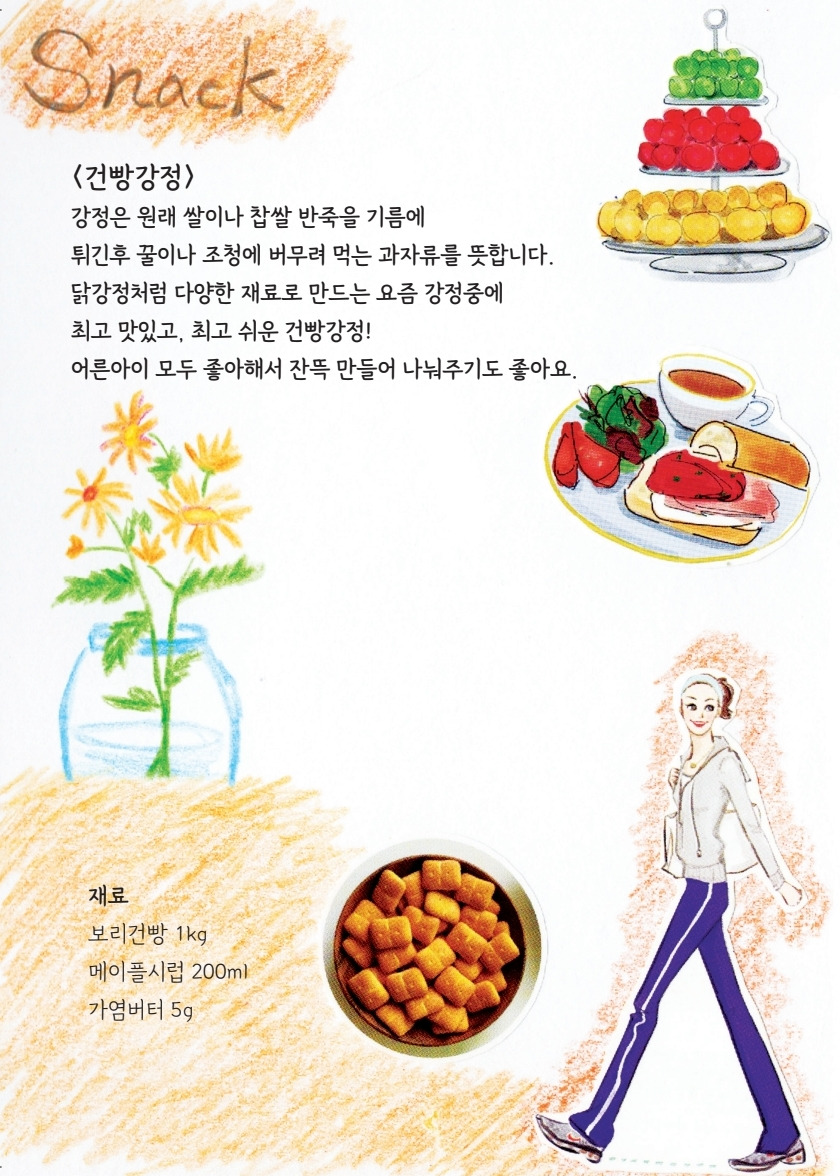 Snack
<건빵강정>
강정은 원래 쌀이나 찹쌀 반죽을 기름에
튀긴후 꿀이나 조청에 버무려 먹는 과자류를 뜻합니다.
닭강정처럼 다양한 재료로 만드는 요즘 강정중에
최고 맛있고, 최고 쉬운 건빵강정!
어른아이 모두 좋아해서 잔뜩 만들어 나눠주기도 좋아요.
재료
보리건빵 1kg
메이플시럽 200ml
가염버터 5g